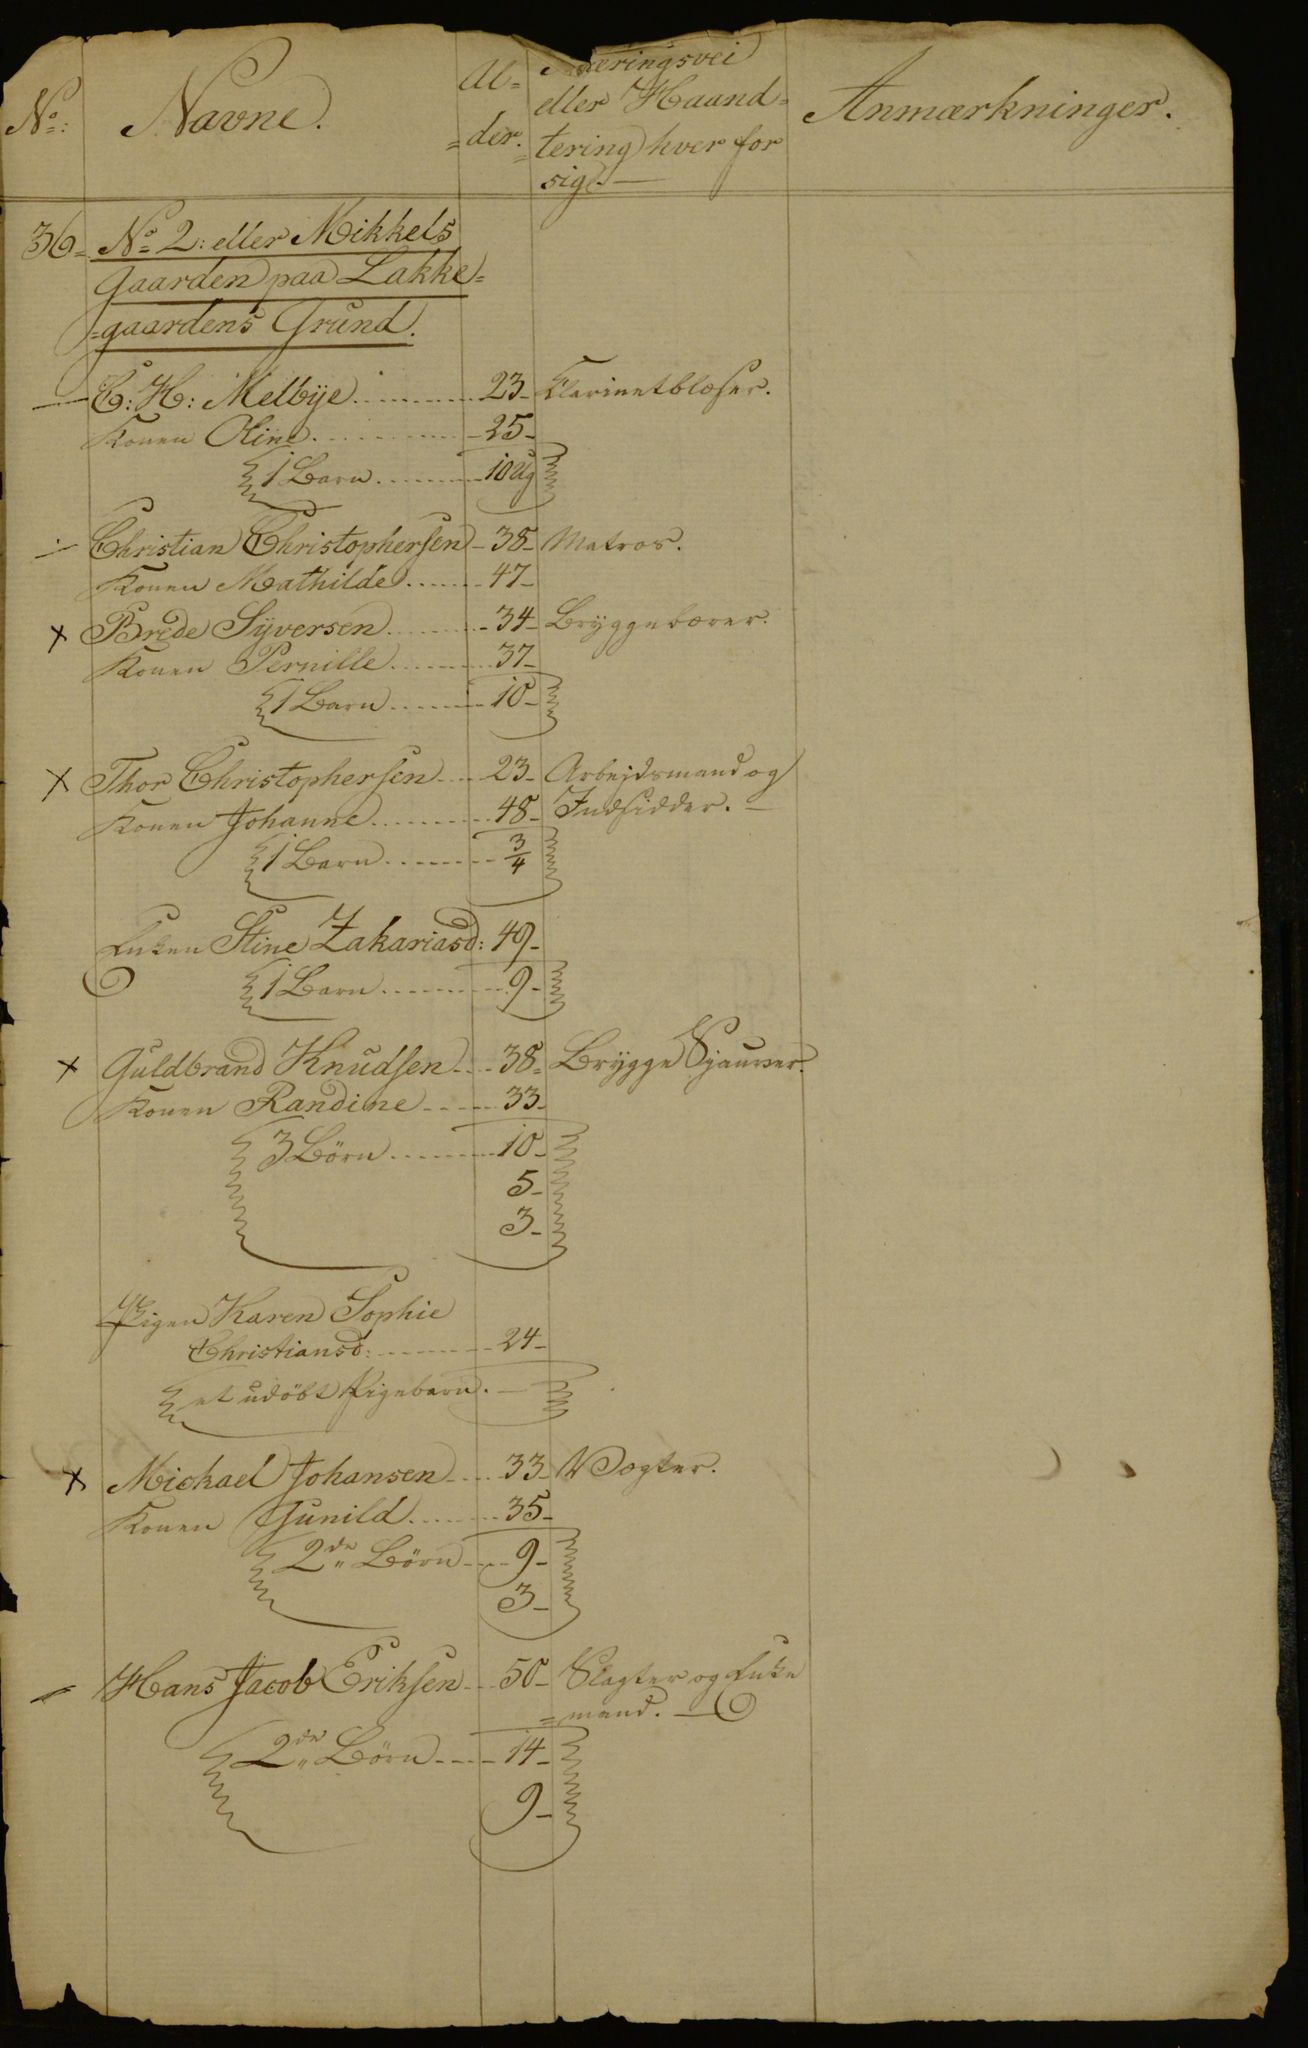 No:
Navne.
Al=
=der.
Næringsvei
eller Haand=
=tering hver for
sig. —
Anmærkninger.
36= No 2: eller Mikkels
gaarden paa Lakke=
=gaardens Grund.
— C: H: Melbÿe 23- Clarinetblæser.
Konen Oline 25-
1 Barn 10 Ug
÷ Christian Christophersen - 38- Matros.
Konen Mathilde 47-
x Brede Sÿversen 34- Brÿggebærer.
Konen Pernille 37-
1 Barn 10-
x Thor Christophersen 23- Arbejdsmand og
Konen Johanne 48- Indsidder. —
1 Barn 3/4
Enken Stine Zakariasd: 49-
1 Barn 9-
x Guldbrand Knudsen 38= Brÿgge Sjauver.
Konen Randine 33-
3 Börn 10-
5-
3-
Pigen Karen Sophie
Christiansd: 24-
et udöbt Pigebarn. —
x Mickael Johansen 33- Vogter.
Konen Gunild 35-
2de Börn 9-
3-
Hans Jacob Eriksen 50- Slagter og Enke
=mand. —
2de Börn 14-
9-